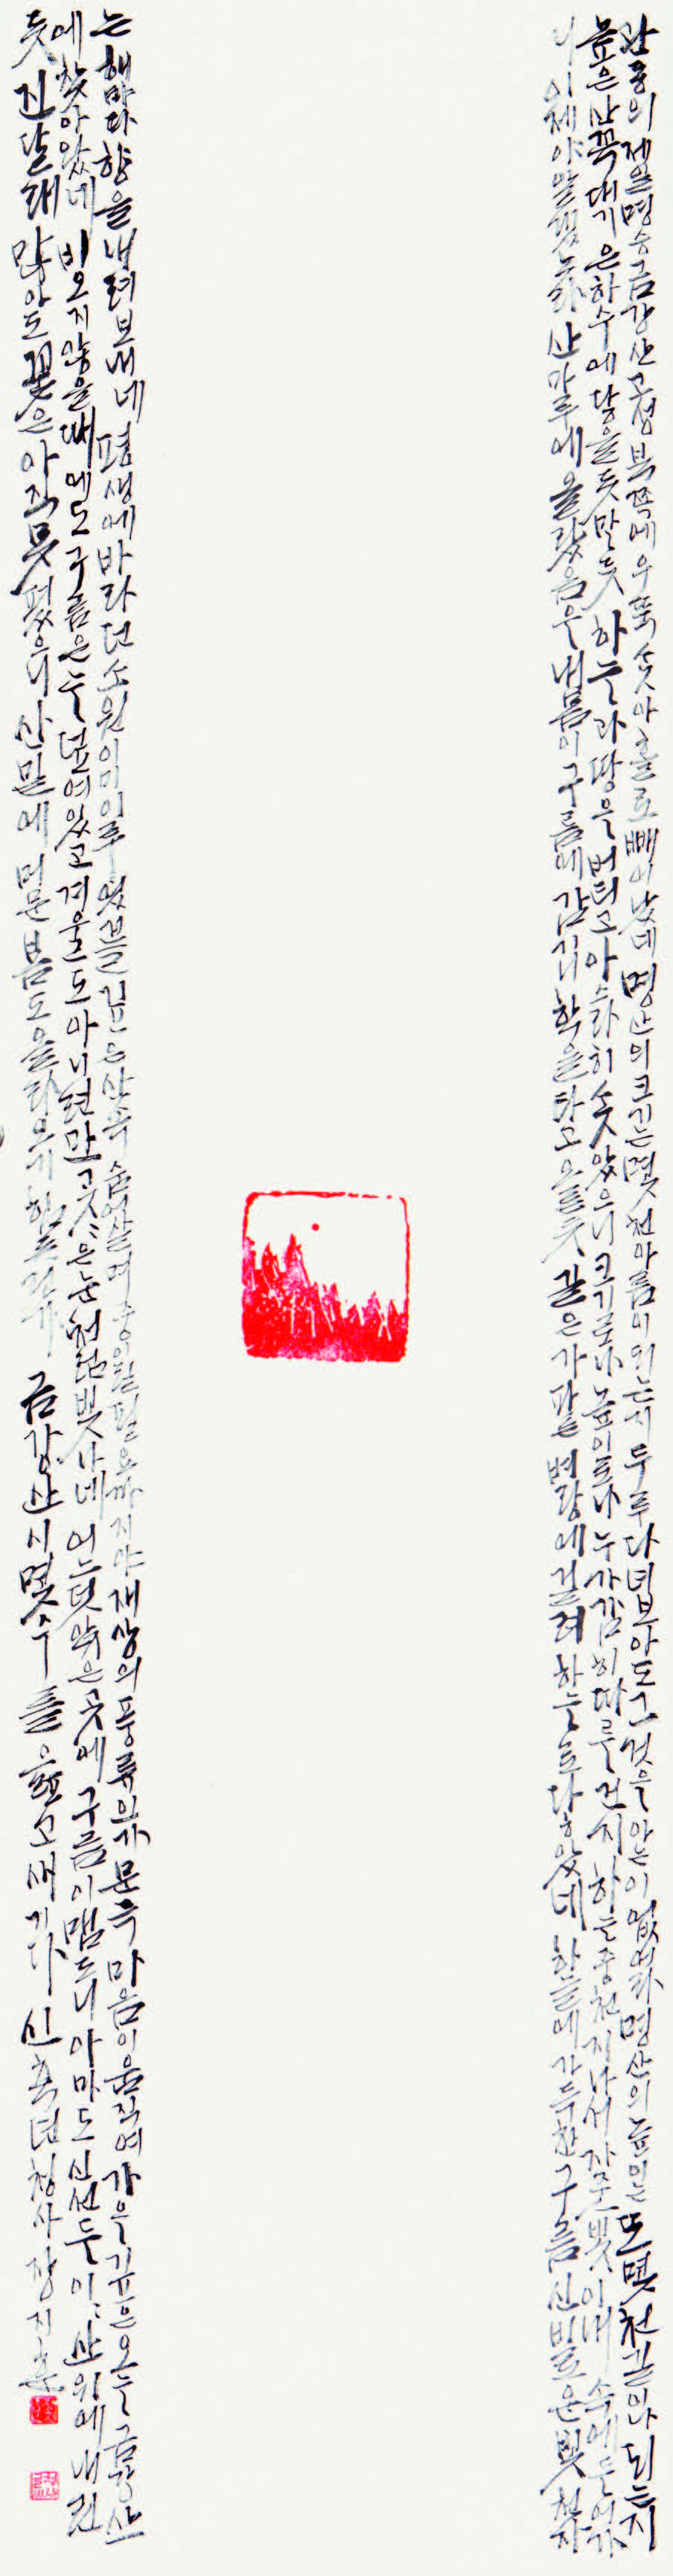 관동의 제일명승 금강산 고성 북쪽에 우뚝 솟아 홀로 빼어났네 명산의 크기는 몇 천아름이 되는지 두루 다녀보아도 그것을 아는이 없어라 명산의 높이는 또 몇 천길이나 되는지
높은 산꼭대기 은하수에 닿을듯 말듯 하늘과 땅을 버티고 아스라히 솟았으니 크기로나 높이로나 누가 감히 따를건지 하늘 중천 지나서 자줏빛 이내 속에 들어가
니 이제야 알겠노라 산마루에 올랐음을 내몸이 구름에 감기니 학을 타고 오를듯 길은 가파른 벼랑에 걸려 하늘로 닿았네 가득한 구름 신비로운 빛 천자
는 해마다 향을 내려보내네 평생에 바라던 소원 이미 이루었거늘 깊은 산속 숨어살며 중이될 필요까지야 재상의 풍류인가 문득 마음이 움직여 가을 깊은 오늘 금강산
에 찾아왔네 비오지 않을 때에도 구름은 늘 덮여있고 겨울도 아니련만 곳곳은 눈천럼 빛나네 어느덧 앉은 곳에 구름이 맴도니 아마도 신선들이 이 산위에 내린
듯 진달래 많아도 꽃은 아직 못폈으니 산밑에 머문 봄도 올라오기 힘든건가 금강산 시 몇수를 읊고 새기다 청사 장지훈